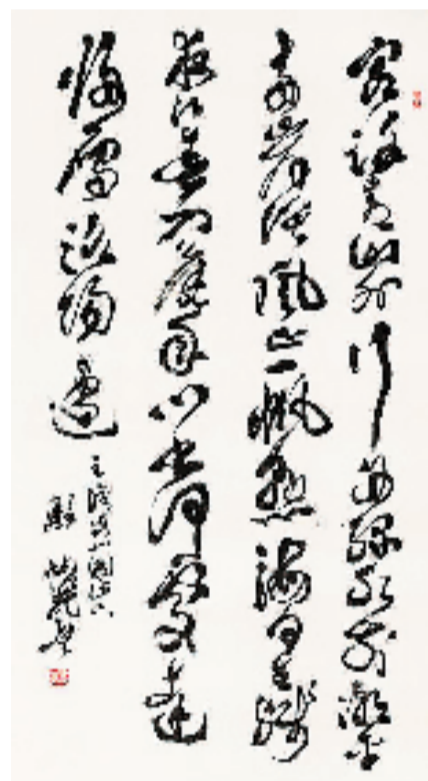 客路青山外行舟綠水前潮平
兩岸闊風正一帆懸海日生殘
夜江春入舊年鄉書何處達
歸雁洛陽邊